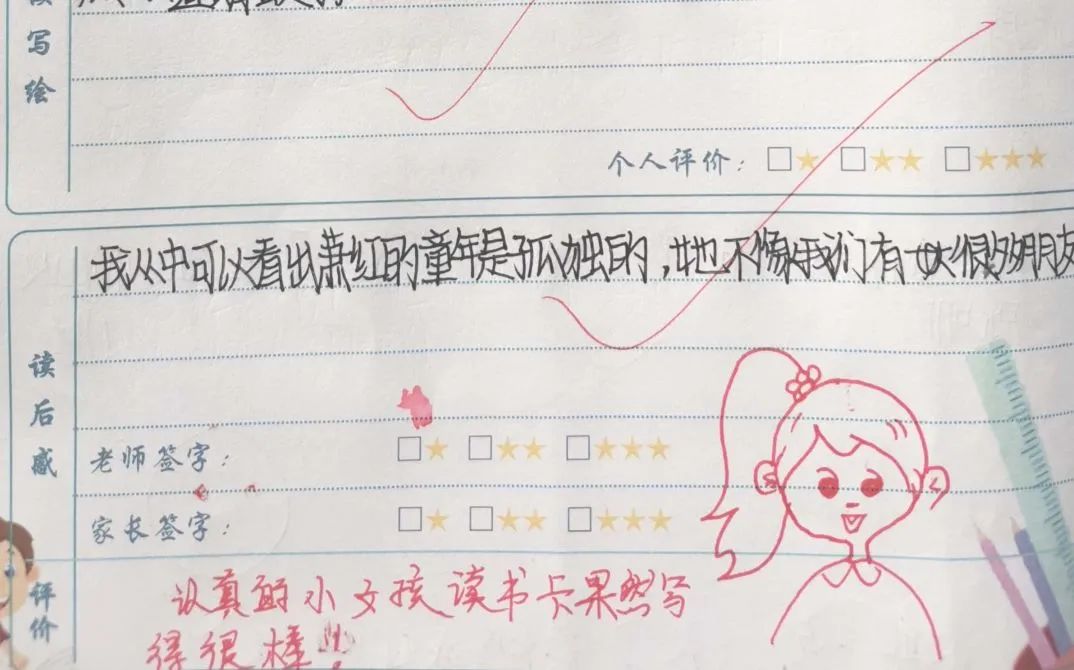 写
绘
个人评价：□★ □★★ □★★★
我从中可以看出萧红的童年是孤独的，她不像我们有很多朋友
读
后
感
老师签字： □★ □★★ □★★★
家长签字： □★ □★★ □★★★
评
价
认真的小女孩读书卡果然写
得很棒!!